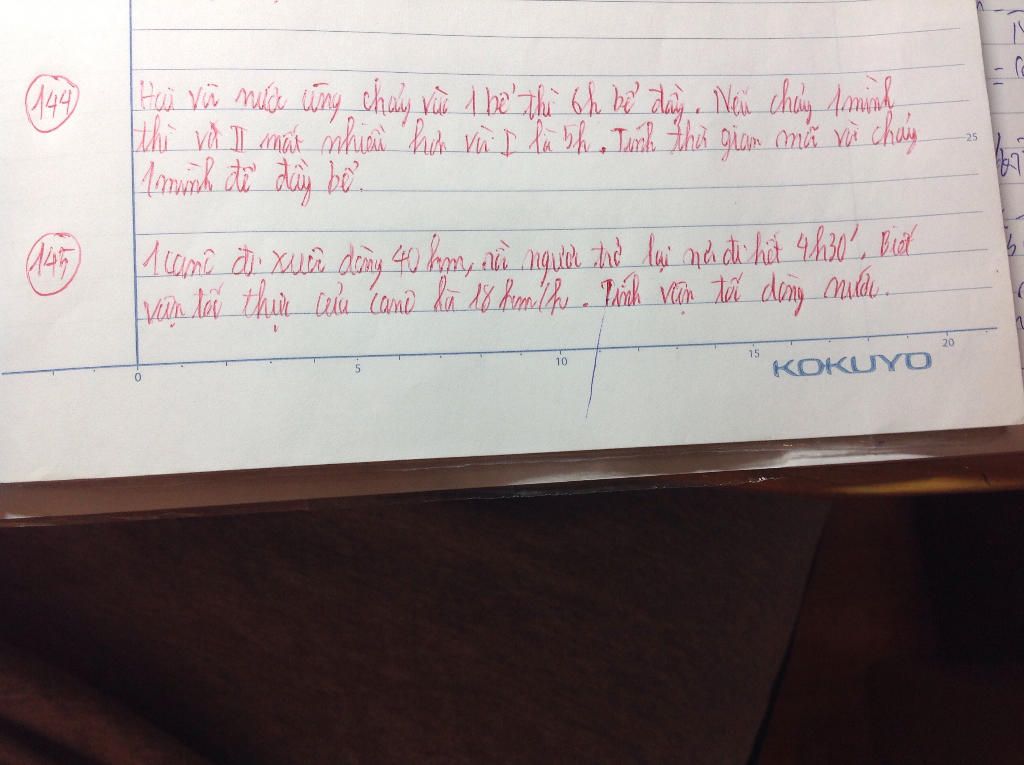 144 Hai vòi nước cùng chảy vào 1 bể thì 6h bể đầy. Nếu chảy 1 mình
thì vòi II mất nhiều hơn vòi I là 5h. Tính thời gian mỗi vòi chảy
1 mình để đầy bể.
145 1 canô đi xuôi dòng 40 km, rồi ngược trở lại nó đi hết 4h30'. Biết
vận tốc thực của canô là 18 km/h. Tính vận tốc dòng nước.
25
0 5 10 15 20
KOKUYO